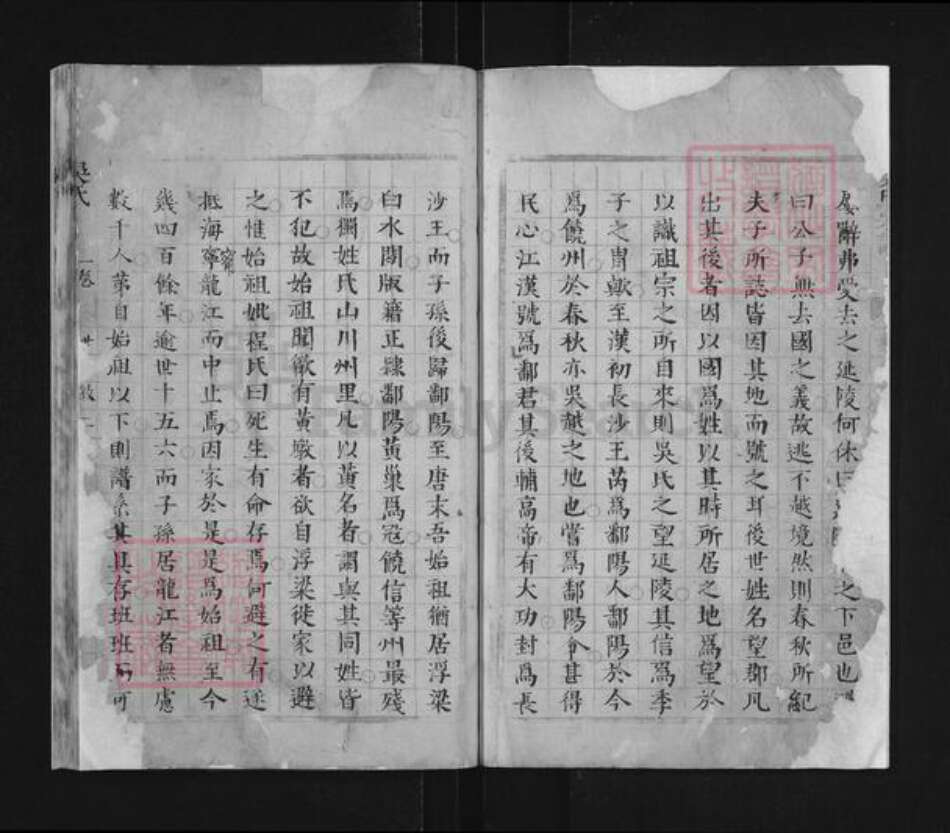 辭弗受去之延陵何休曰 之下邑也
曰公子無去國之義故逃不越境然則春秋所紀
夫子所誌皆因其地而號之耳後世姓名望郡凡
出其後者因以國爲姓以其時所居之地爲望於
以識祖宗之所自來則吳氏之望延陵其信爲季
子之冑歟至漢初長沙王芮爲鄱陽人鄱陽於今
爲饒州於春秋亦吳越之地也嘗爲鄱陽令甚得
民心江漢號爲鄱君其後輔高帝有大功封爲長
沙王而子孫後歸鄱陽至唐末吾始祖猶居浮梁
白水閣版籍正隸鄱陽黃巢爲寇饒信等州最殘
焉獨姓氏山川州里凡以黃名者謂與其同姓皆
不犯故始祖聞歙有黃墩者欲自浮梁徙家以避
之惟始祖妣程氏曰死生有命存焉何避之有遂
抵海寧龍江而中止焉因家於是是爲始祖至今
寗
幾四百餘年逾世十五六而子孫居龍江者無慮
數千人第自始祖以下則譜系其具存班班 可
吳氏 卷